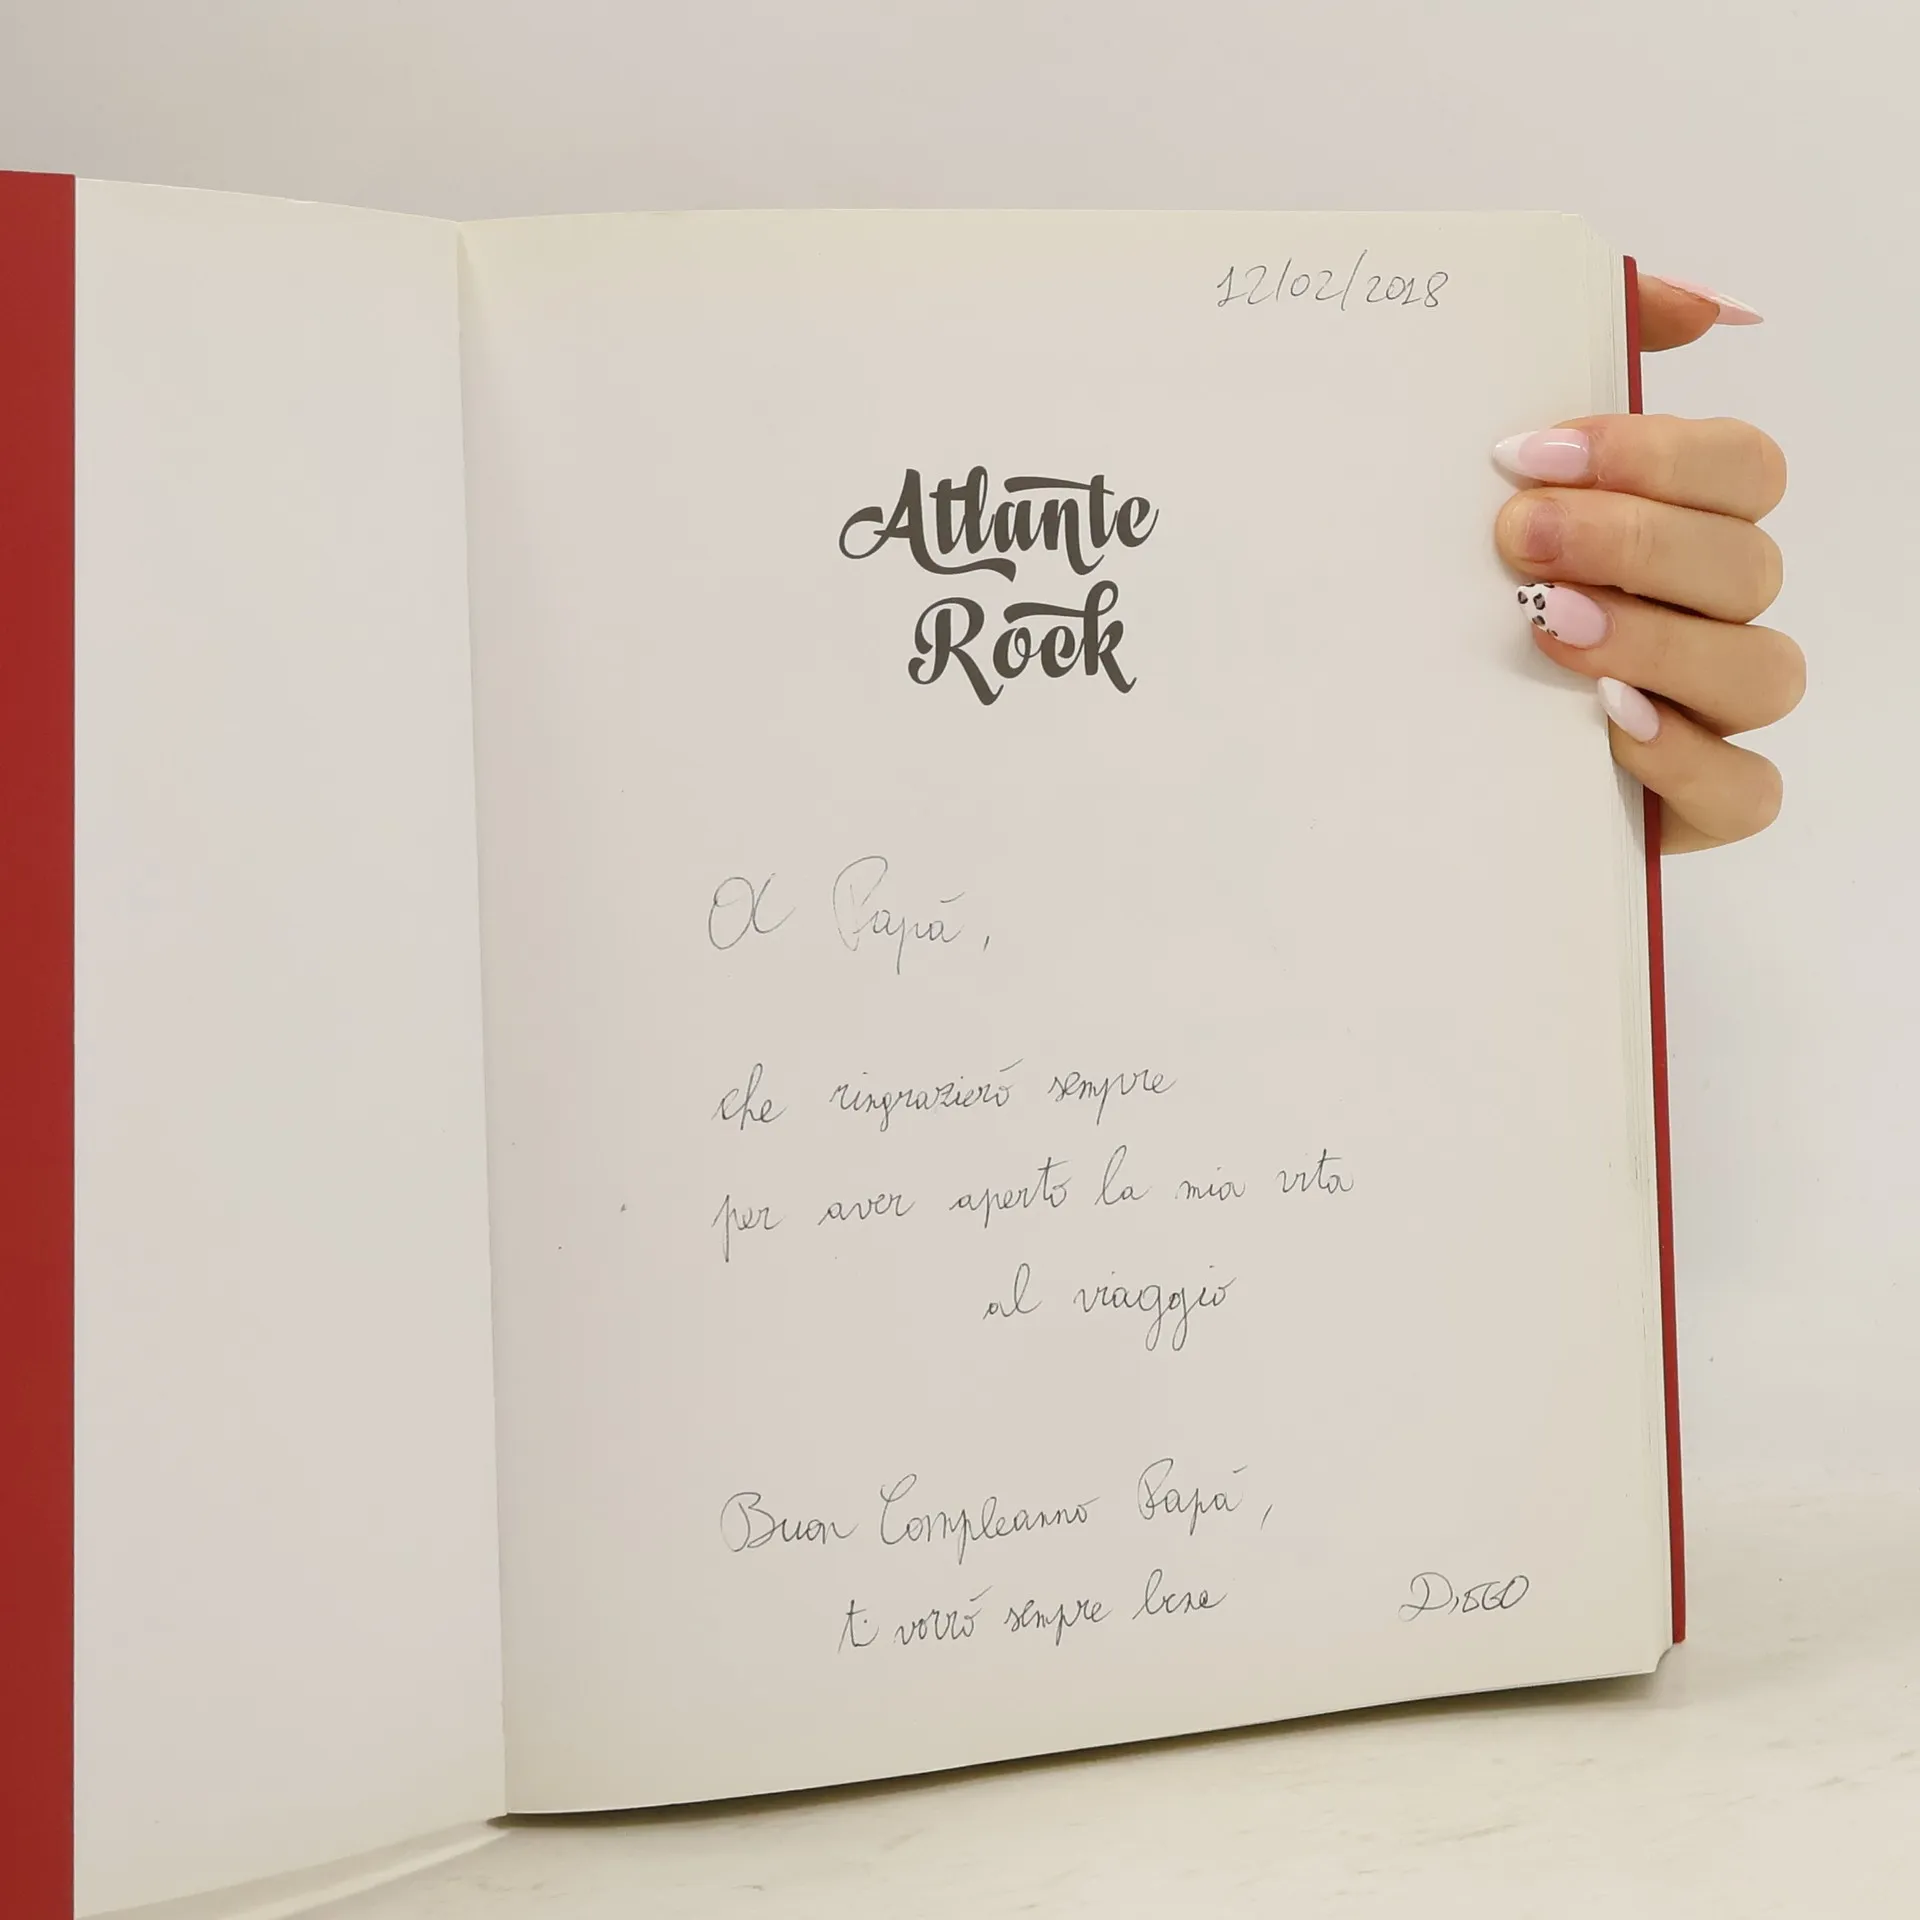 12/02/2018
Atlante
Rock
Al Papá,
che ringrazieró sempre
per aver aperto la mia vita
al viaggio
Buon Compleanno Papá,
ti vorró sempre bene
DiEGO